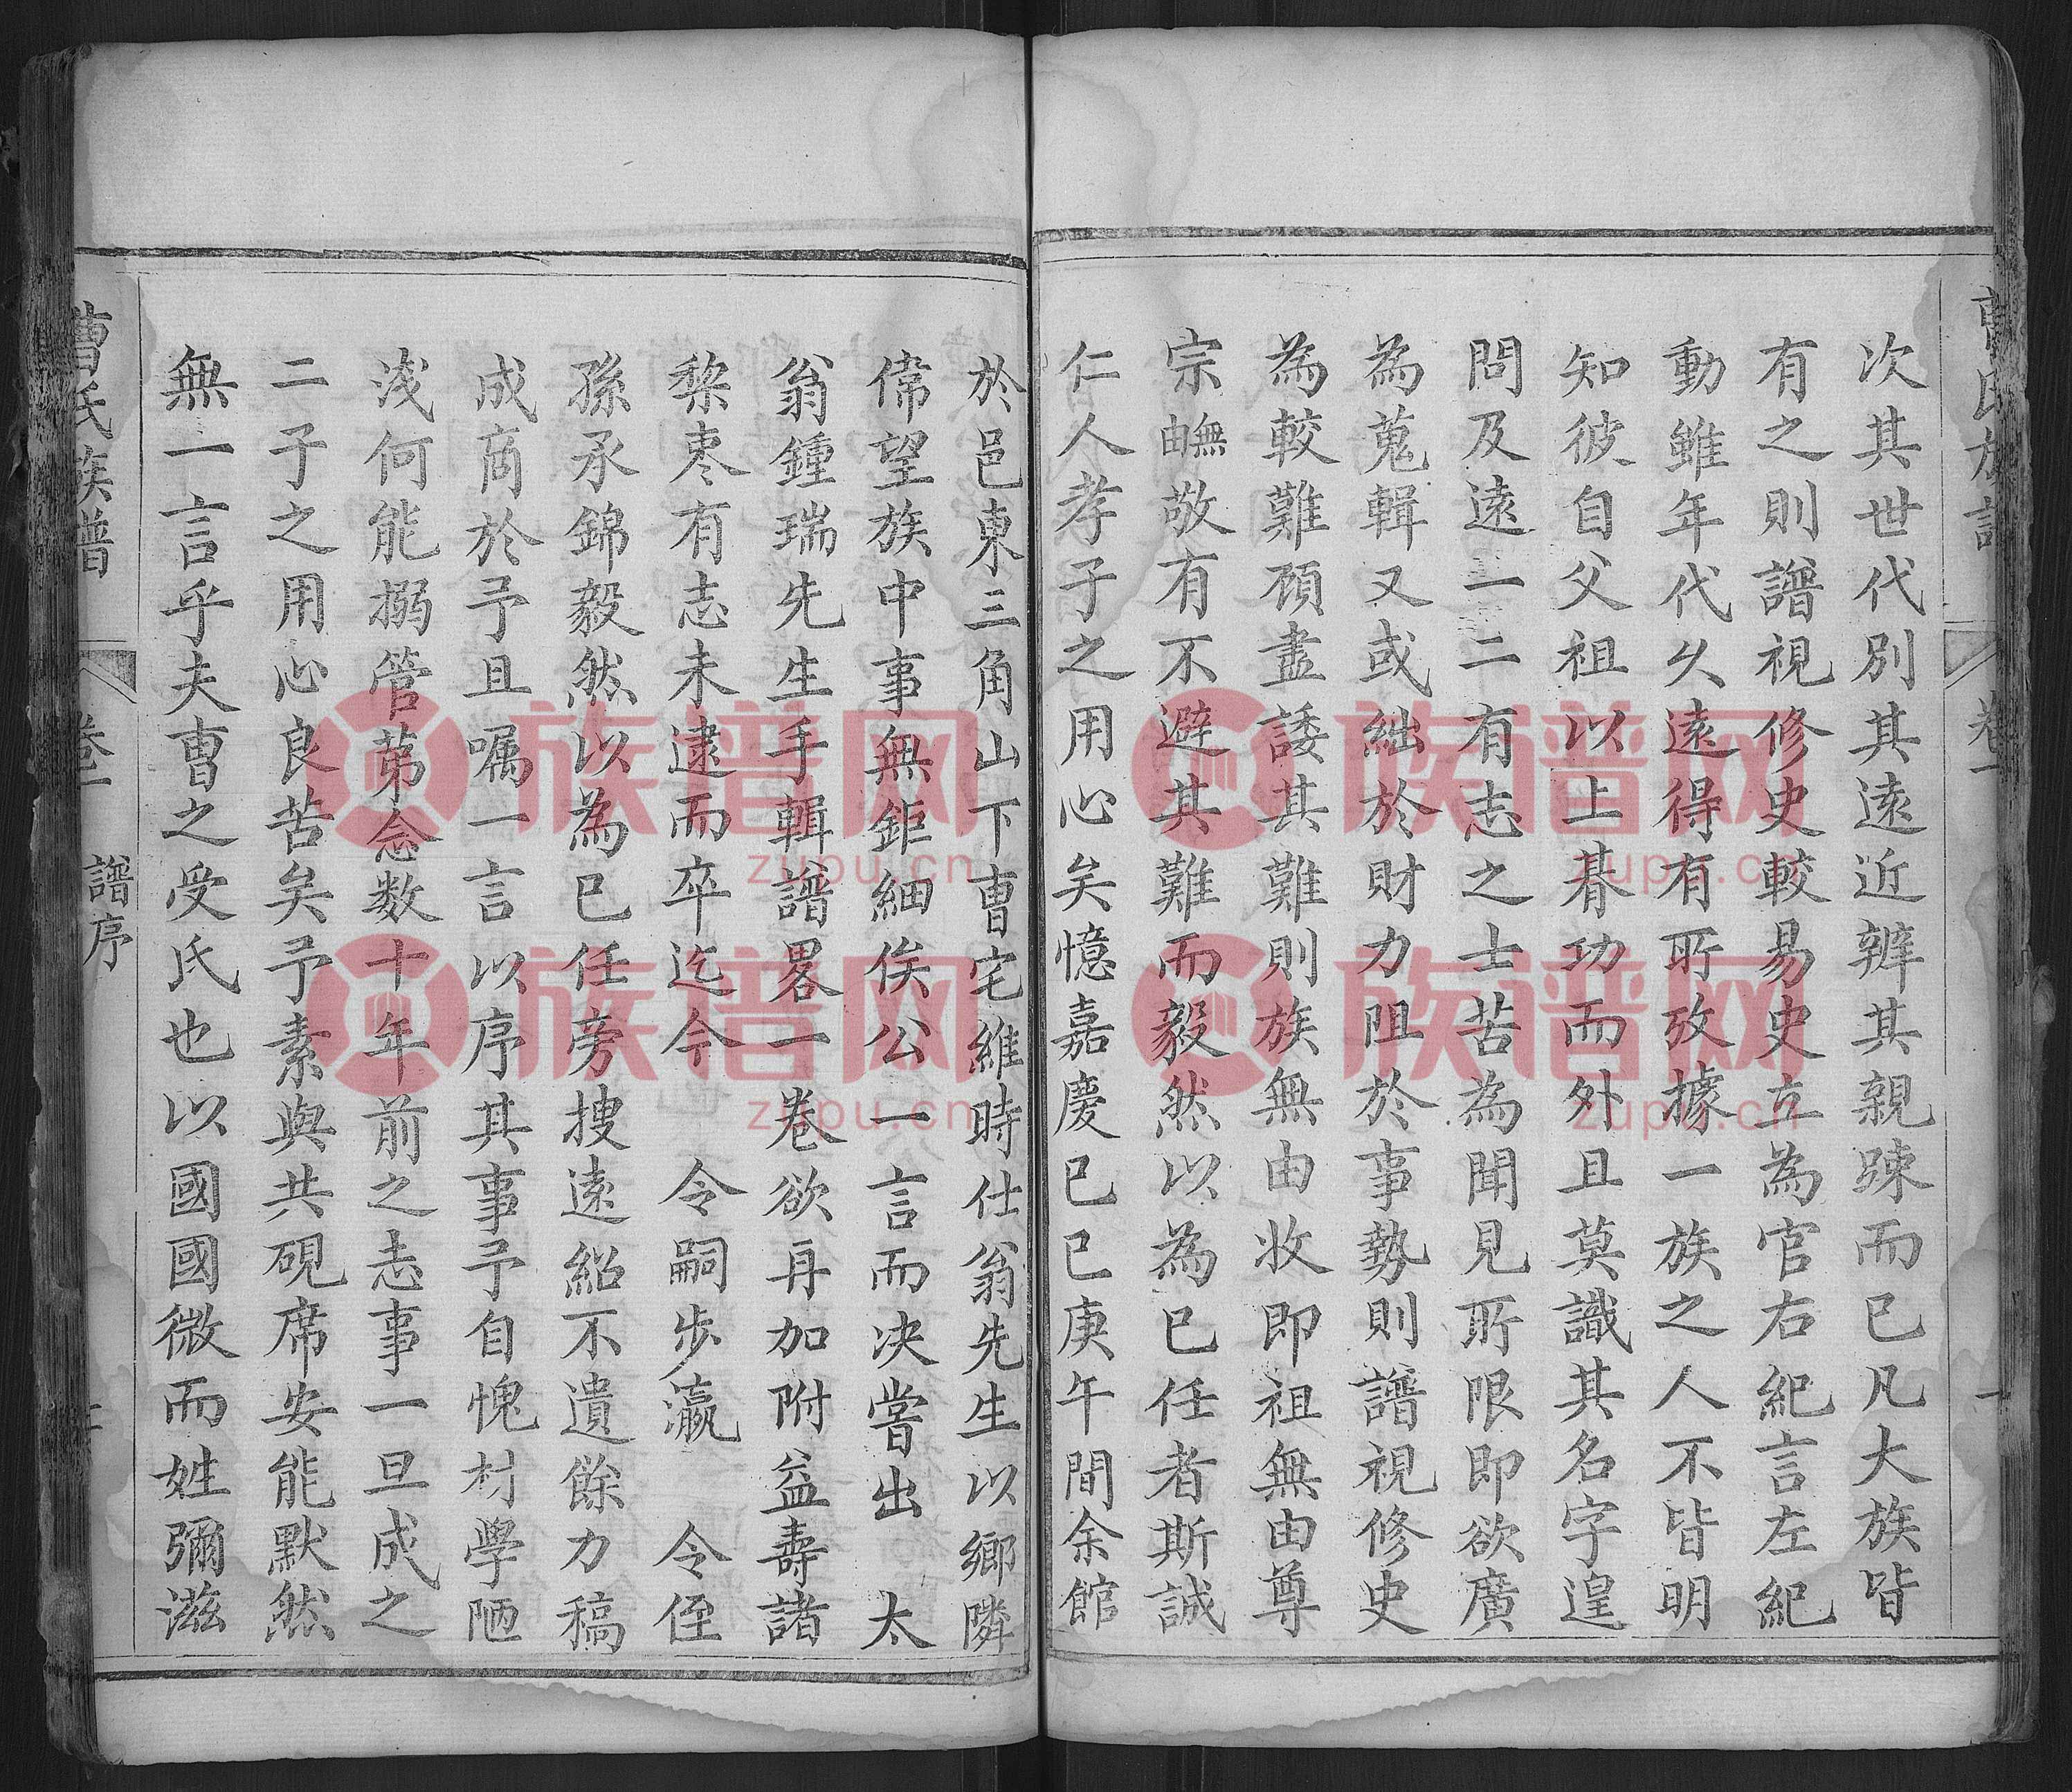 次其世代別其遠近辨其親踈而已凡大族皆
有之則譜視修史較易史立為官右紀言左紀
動雖年代久遠得有所攷據一族之人不皆明
知彼自父祖以上朞功而外且莫識其名字遑
問及遠一二有志之士苦為聞見所限即欲廣
為蒐輯又或絀於財力阻於事勢則譜視修史
為較難頋盡諉其難則族無由收即祖無由尊
宗敬有不避其難而毅然以為已任者斯誠
仁人孝子之用心矣憶嘉慶已巳庚午間余館
於邑東三角山下曺宅維時仕翁先生以鄉隣
偉望族中事無鉅細俟公一言而决嘗出太
翁鍾瑞先生手輯譜畧一卷欲再加附益壽諸
棃枣有志未逮而卒迄今令嗣步瀛令侄
孫承錦毅然以為已任旁搜遠紹不遺餘力稿
成商於予且嘱一言以序其事予自愧材學陋
浅何能搦管苐念数十年前之志事一旦成之
二子之用心良苦矣予素與共硯席安能默然
無一言乎夫曺之受氏也以國國微而姓彌滋
曺氏族譜 卷一 譜序